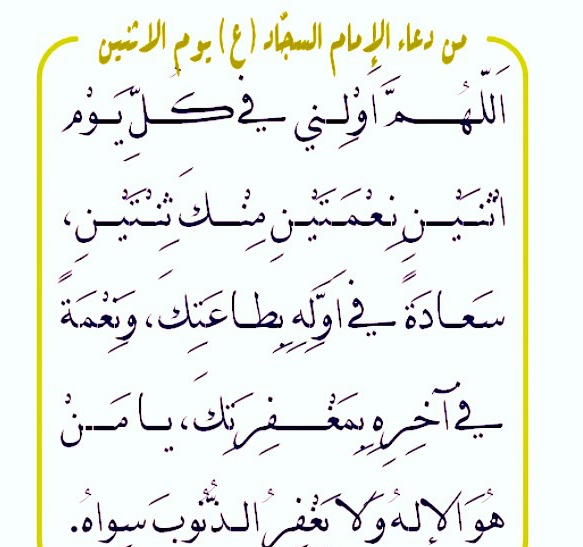 من دعاء الإمام السجّاد (ع) يوم الاثنين
اَللّهُمَّ اَوْلِني في كُلِّ يَوْمِ
اثْنَيْنِ نِعْمَتَيْنِ مِنْكَ ثِنْتَيْنِ،
سَعادَةً في اَوَّلِهِ بِطاعَتِكَ، وَنِعْمَةً
في آخِرِهِ بِمَغْفِرَتِكَ، يا مَنْ
هُوَ الإلهُ وَلا يَغْفِرُ الذُّنُوبَ سِواهُ.